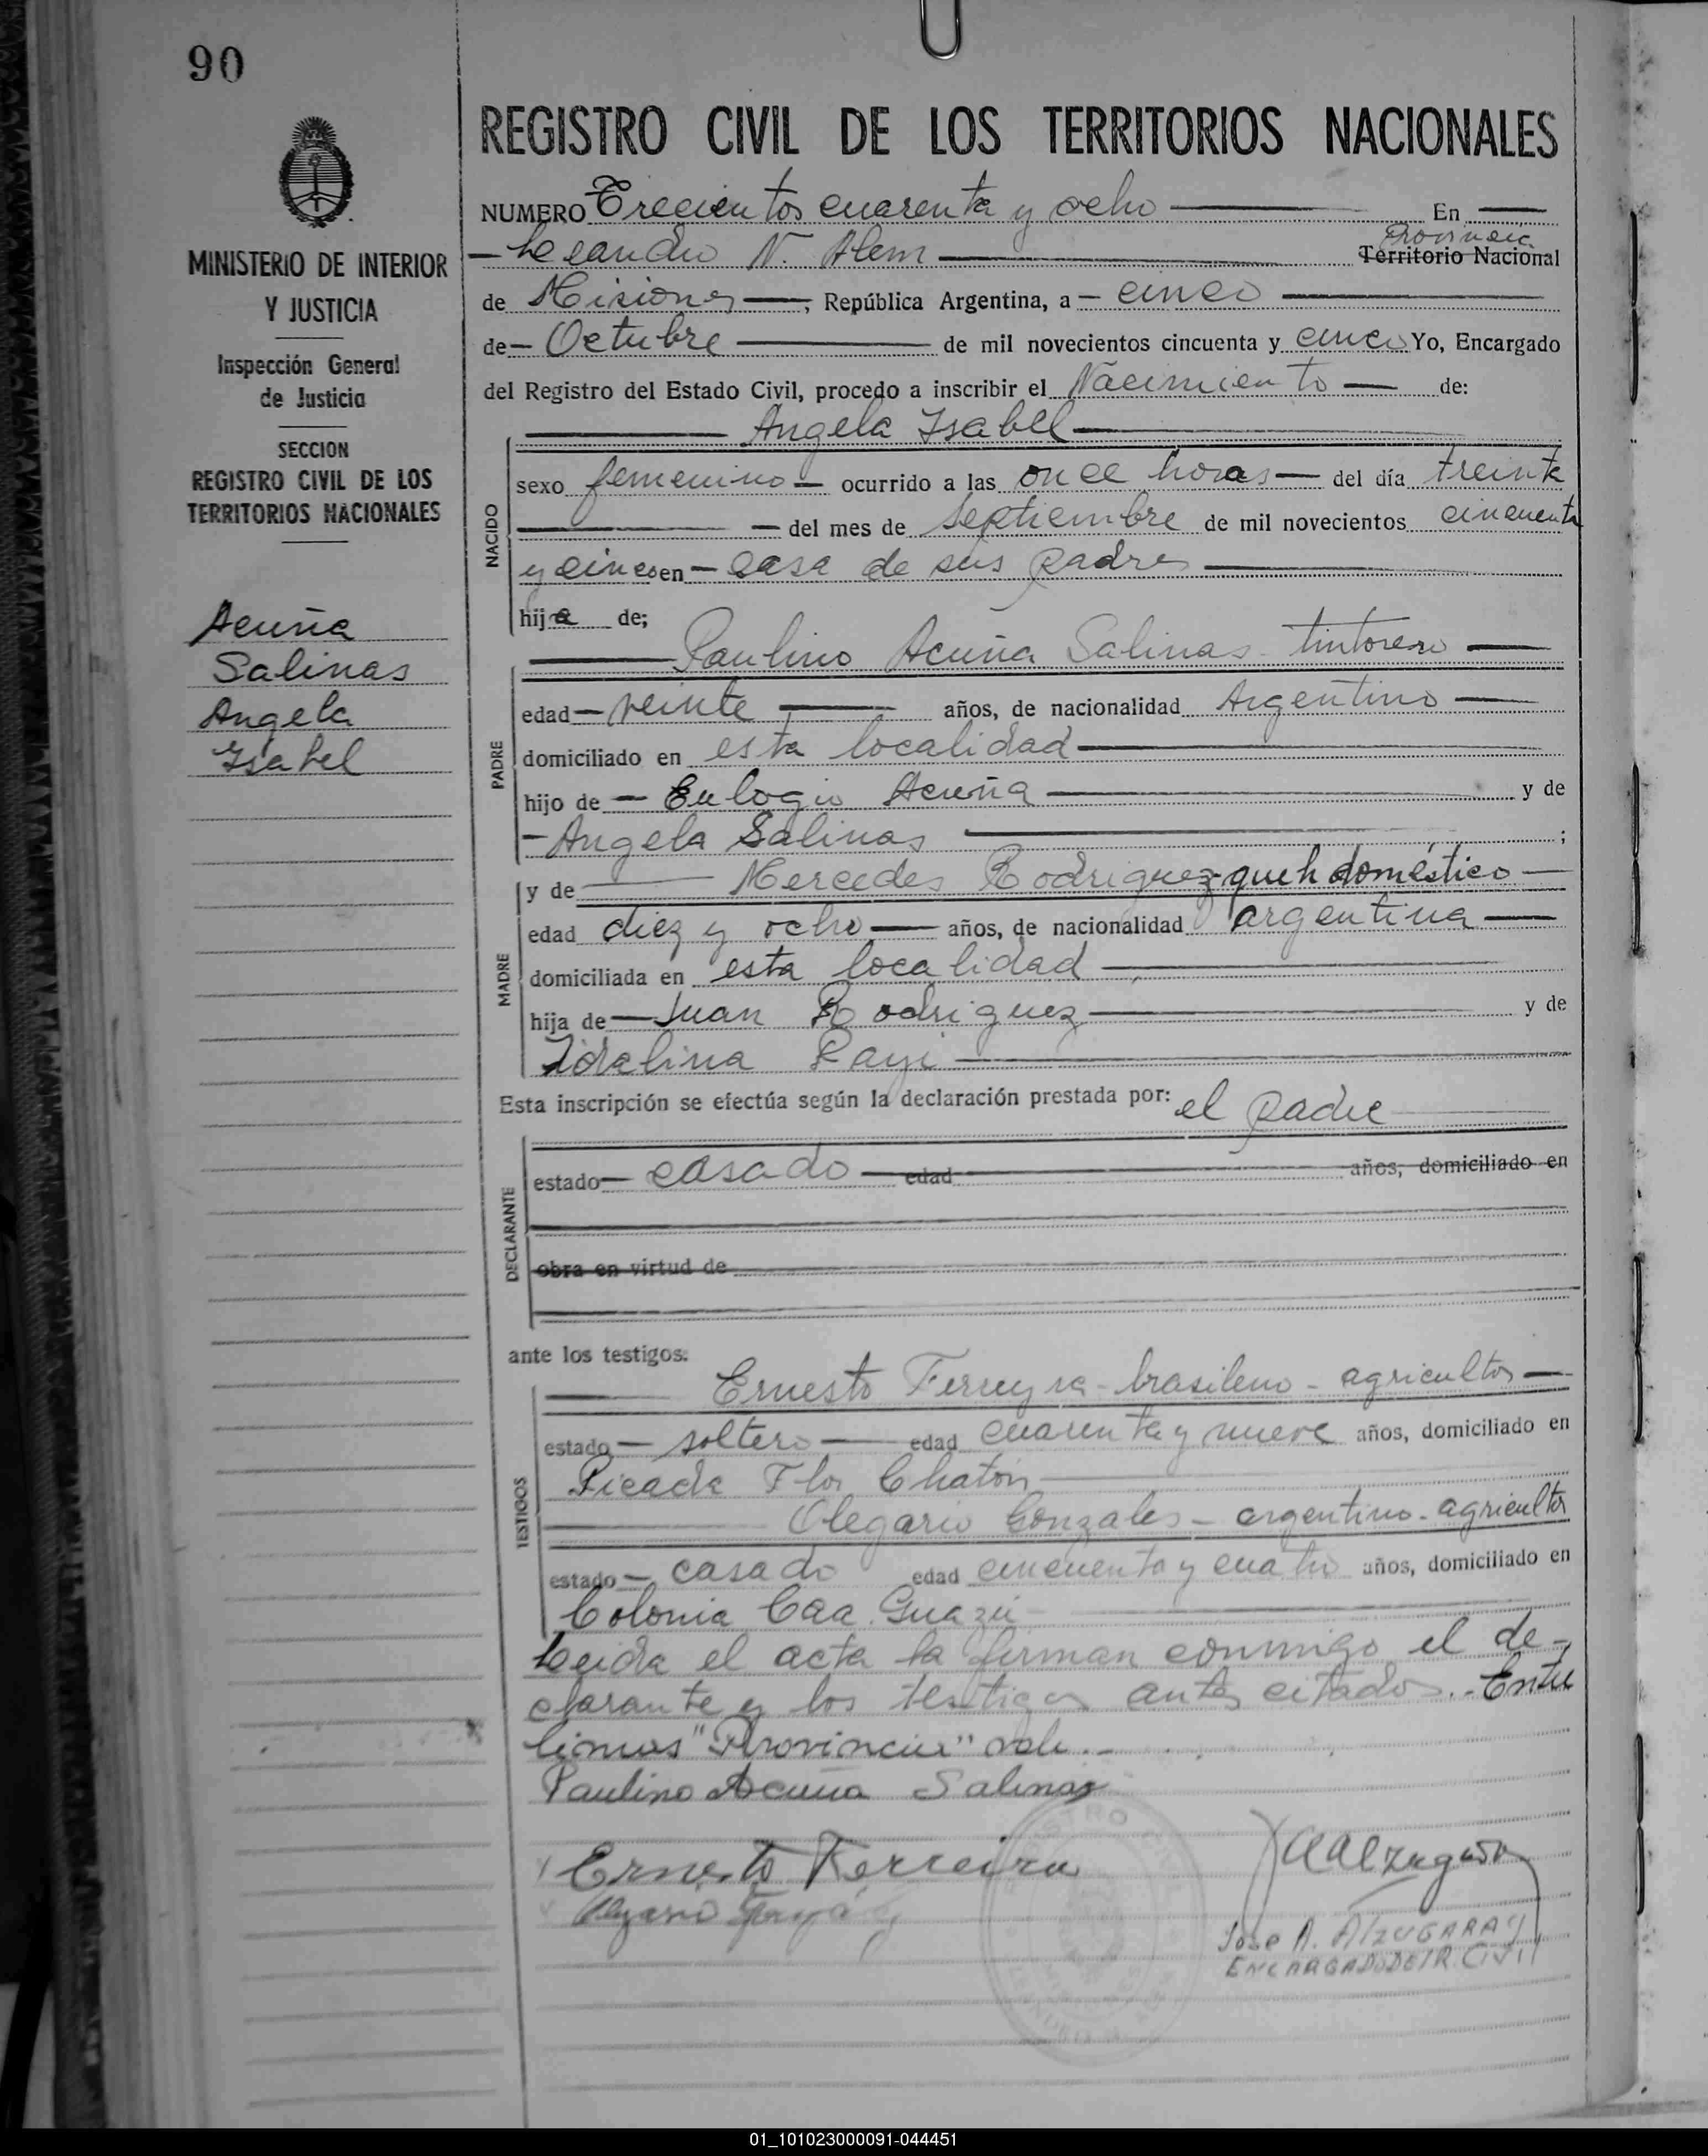 90
MINISTERIO DE INTERIOR
Y JUSTICIA
Inspección General
de Justicia
SECCION
REGISTRO CIVIL DE LOS
TERRITORIOS NACIONALES
Acuña
Salinas
Angela
Ysabel
REGISTRO CIVIL DE LOS TERRITORIOS NACIONALES
NUMERO Trecientos cuarenta y ocho En
Leandro N. Alem Provincia Territorio Nacional
de Misiones, República Argentina, a cinco
de Octubre de mil novecientos cincuenta y cinco Yo, Encargado
del Registro del Estado Civil, procedo a inscribir el Nacimiento de:
Angela Ysabel
NACIDO
sexo femenino ocurrido a las once horas del día treinta
del mes de Septiembre de mil novecientos cincuenta
y cinco en casa de sus padres
hija de;
Paulino Acuña Salinas - tintorero
PADRE
edad veinte años, de nacionalidad Argentino
domiciliado en esta localidad
hijo de Eulogio Acuña y de
Angela Salinas ;
MADRE
y de Mercedes Rodriguez - queh doméstico
edad diez y ocho años, de nacionalidad argentina
domiciliada en esta localidad
hija de Juan Rodriguez y de
Idalina
Esta inscripción se efectúa según la declaración prestada por: el padre
DECLARANTE
estado casado edad años, domiciliado en
obra en virtud de
ante los testigos:
TESTIGOS
Ernesto Ferreyra - brasileno - agricultor
estado soltero edad cuarenta y nueve años, domiciliado en
Picada Flor
Olegario Gonzales - argentino - agricultor
estado casado edad cincuenta y cuatro años, domiciliado en
Colonia Caa Guazú
Leida el acta la firman conmigo el de-
clarante y los testigos antes citados.- Entre
lineas "Provincia" vale.-
Paulino Acuña Salinas
Ernesto Ferreira
Jose A. AlzuGARAY
ENCARGADO DE R. CIVIL
01_101023000091-044451